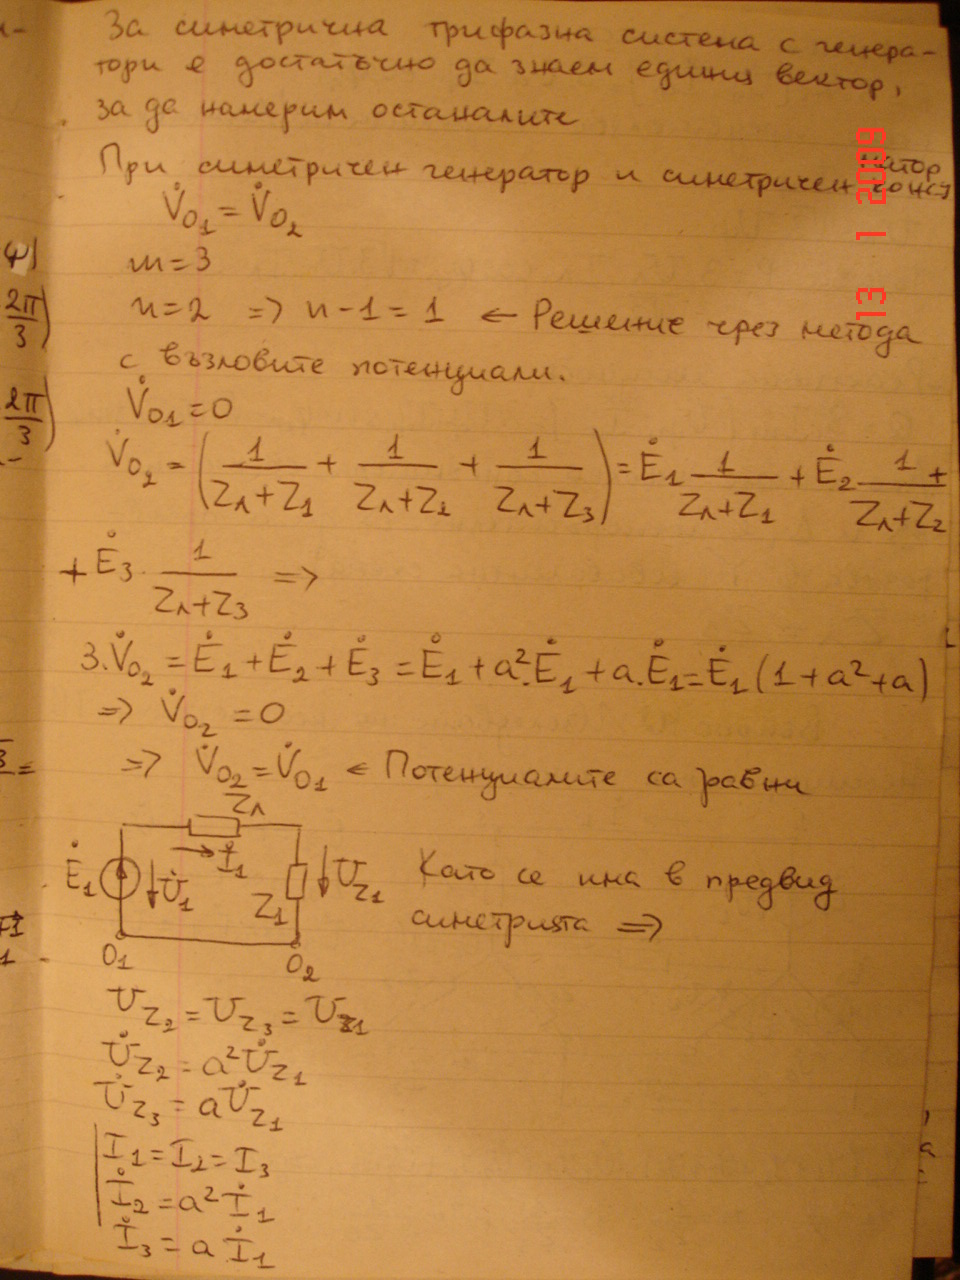 За симетрична трифазна система с генера-
тори е достатъчно да знаем единия вектор,
за да намерим останалите
При симетричен генератор и симетричен
V̇O₁ = V̇O₂
m=3
n=2 => n-1=1 ← Решение чрез метода
с възловите потенциали.
V̇O₁ = 0
V̇O₂ = (1/(Zл+Z1) + 1/(Zл+Z2) + 1/(Zл+Z3)) = Ė1 1/(Zл+Z1) + Ė2 1/(Zл+Z2) +
+ Ė3 . 1/(Zл+Z3) =>
3.V̇O₂ = Ė1 + Ė2 + Ė3 = Ė1 + a².Ė1 + a.Ė1 = Ė1 (1+a²+a)
=> V̇O₂ = 0
=> V̇O₂ = V̇O₁ ← Потенциалите са равни
Zл
İ1
Ė1
U̇1
Z1
UZ1
O1
O2
Като се има в предвид
симетрията =>
UZ2 = UZ3 = UZ1
U̇Z2 = a²U̇Z1
U̇Z3 = aU̇Z1
I1 = I2 = I3
İ2 = a² İ1
İ3 = a İ1
13 1 2009
φ)
2π/3)
2π/3)